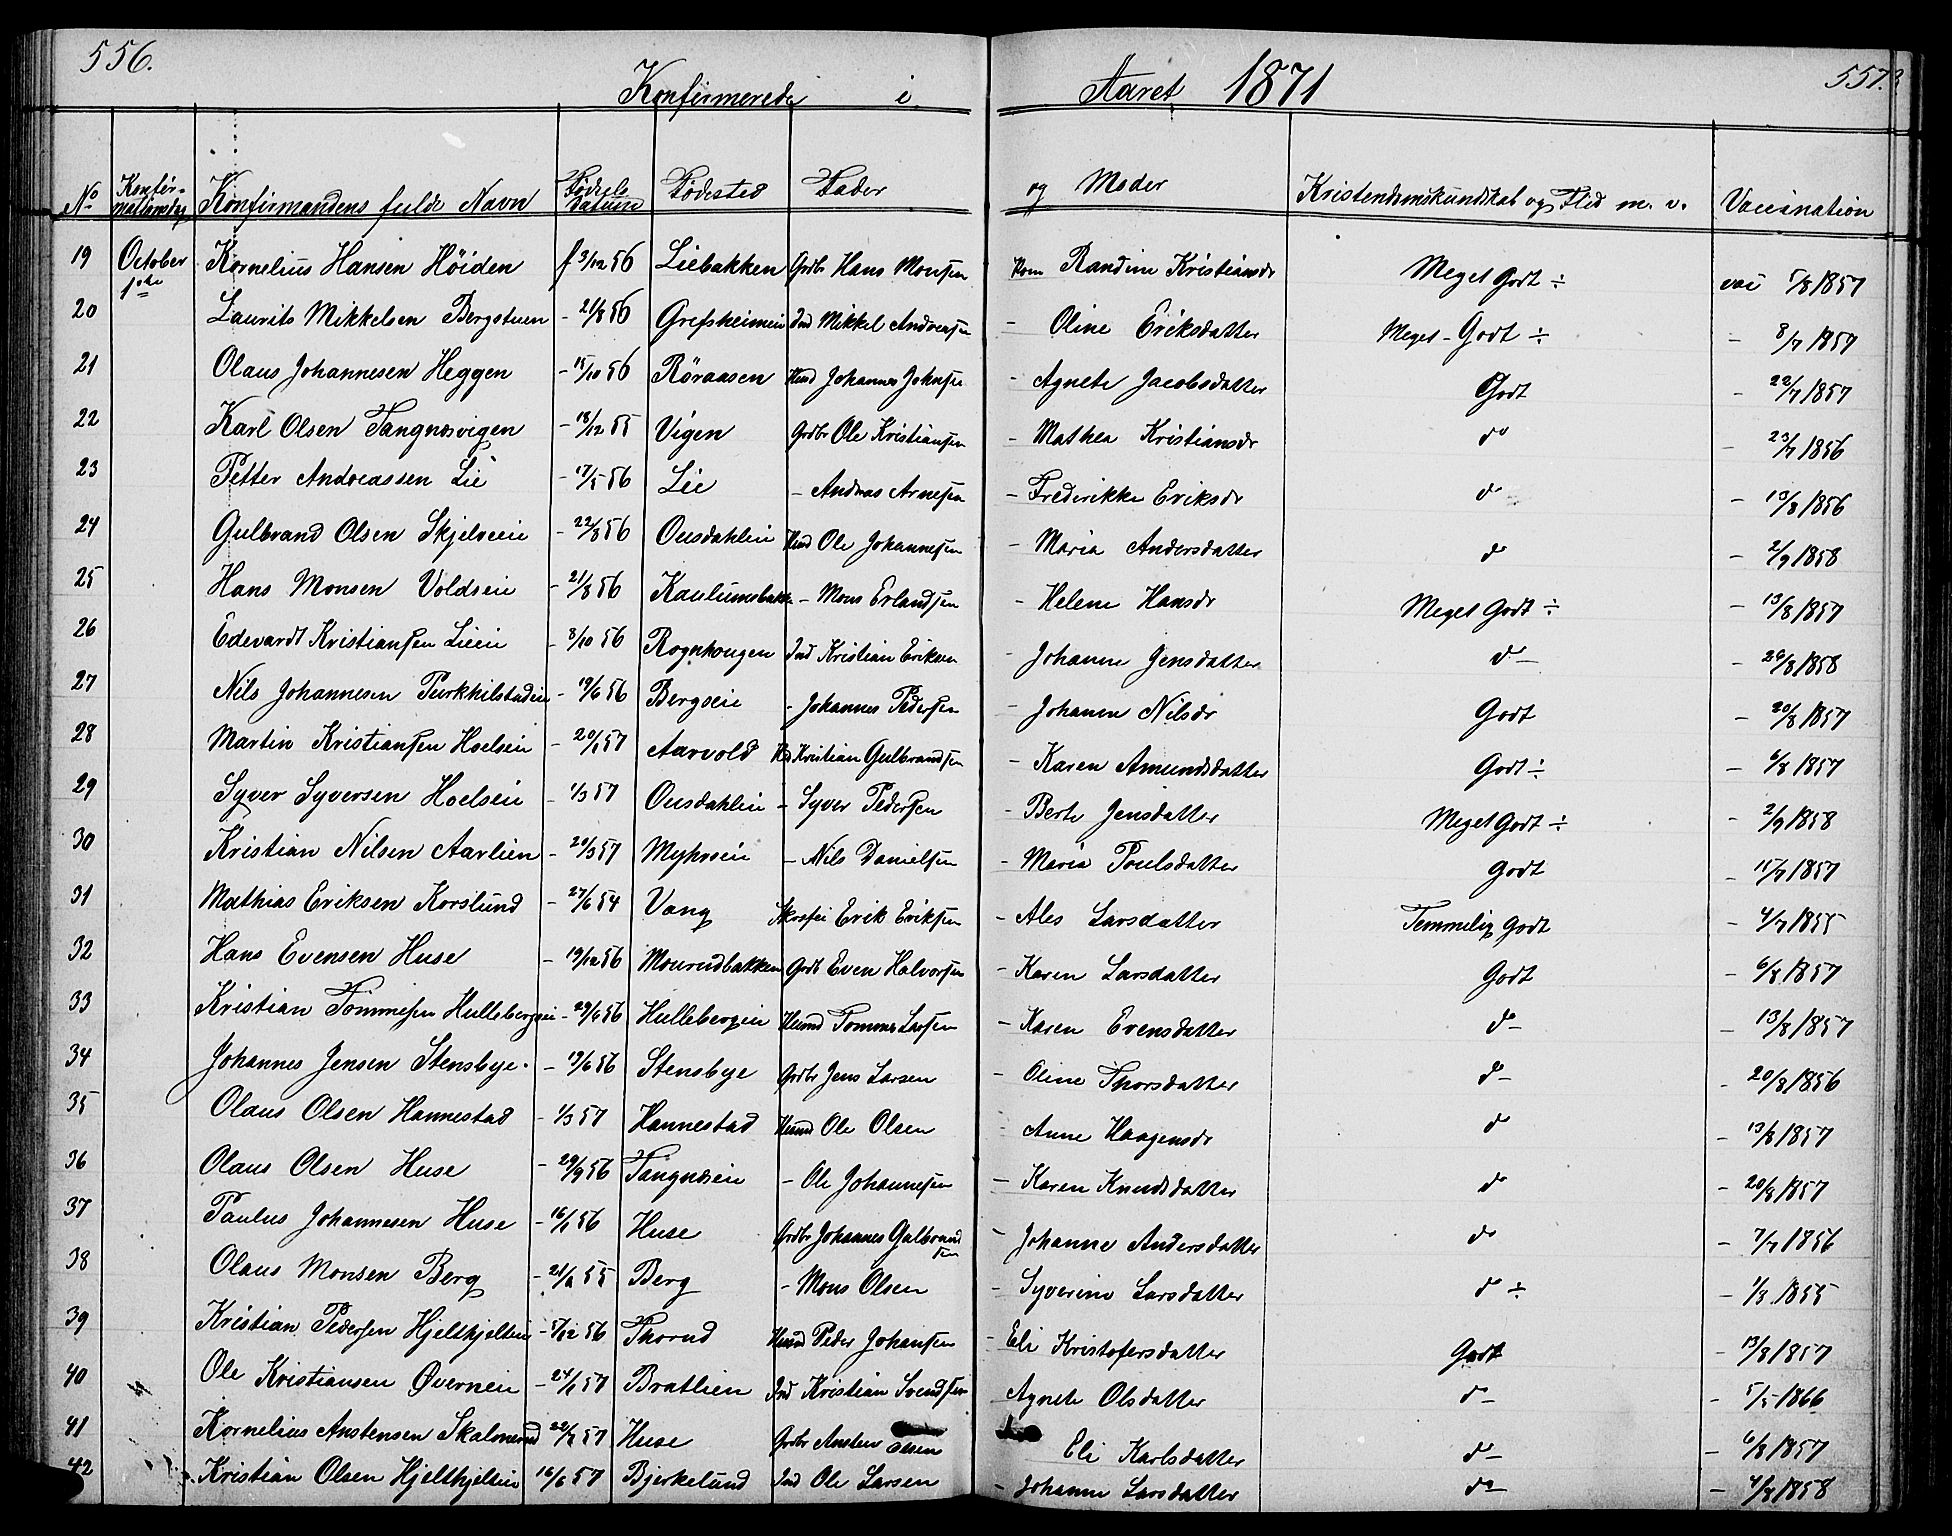 556.
Konfirmerede i Aaret 1871
557.
No Konfir-mationsdag Konfirmandens fulde Navn Fødsels Datum Fødested Fader og Moder Kristendomskundskab og Flid m. v. Vaccination
19 October 1ste Kornelius Hansen Høiden f 3/12 56 Liebakken Grdbr Hans Monsen Kone Randine Kristiansdr Meget Godt ÷ vac 5/8 1857
20 Laurits Mikkelsen Bergstuen - 21/8 56 Grefsheimein Ind Mikkel Andreasen - Oline Eriksdatter Meget - Godt ÷ - 8/7 1857
21 Olaus Johannesen Heggen - 15/10 56 Røraasen Hmd Johannes Johnsen - Agnete Jacobsdatter Godt - 22/7 1857
22 Karl Olsen Tangnæsvigen - 18/12 55 Vigen Grdbr Ole Kristiansen - Mathea Kristiansdr do - 23/7 1856
23 Petter Andreassen Lie - 17/5 56 Lie - Andreas Arnesen - Frederikke Eriksdr do - 13/8 1856
24 Gulbrand Olsen Skjelveie - 22/8 56 Ousdahlein Hmd Ole Johannesen - Maria Andersdatter do - 2/9 1858
25 Hans Monsen Voldseie - 21/8 56 Kaulumsbakk - Mons Erlandsen - Helene Hansdr Meget Godt ÷ - 13/8 1857
26 Edevardt Kristiansen Lieeie - 8/10 56 Rognhougen Ind Kristian Eriksen - Johanne Jensdatter do - 26/8 1858
27 Nils Johannesen Purkhilstadeie - 19/6 56 Bergseie - Johannes Pedersen - Johanne Nilsdr Godt - 20/8 1857
28 Martin Kristiansen Hoelseie - 20/1 57 Aarvold Kristian Gulbrandsen - Karen Amundsdatter Godt ÷ - 6/8 1857
29 Syver Syversen Hoelseie - 1/3 57 Ousdahlein - Syver Pedersen - Berte Jensdatter Meget Godt ÷ - 2/9 1858
30 Kristian Nilsen Aarlien - 20/3 57 Myhreeie - Nils Danielsen - Maria Poulsdatter Godt - 15/7 1857
31 Mathias Eriksen Korslund - 27/6 54 Vang Erik Eriksen - Ales Larsdatter Temmelig Godt - 4/7 1855
32 Hans Evensen Huse - 19/12 56 Mourudbakken Grdb Even Halvorsen - Karen Larsdatter Godt - 6/8 1857
33 Kristian Tommesen Hullebergeie - 29/6 56 Hullebergeie Husmd Tommes Larsen - Karen Evensdatter do - 13/8 1857
34 Johannes Jensen Stensbye - 19/6 56 Stensbye Grdbr Jens Larsen - Oline Thorsdatter do - 20/8 1856
35 Olaus Olsen Hannestad - 1/3 57 Hannestad Husmd Ole Olsen - Anne Haagensdr do - 13/8 1857
36 Olaus Olsen Huse - 29/9 56 Tangnæseie - Ole Johannesen - Karen Knudsdatter do - 20/8 1857
37 Paulus Johannesen Huse - 16/1 56 Huse Grdbr Johannes Gulbrandsen - Johanne Andersdatter do - 7/7 1856
38 Olaus Monsen Berg - 21/2 55 Berg - Mons Olsen - Syverine Larsdatter do ÷ - 1/3 1855
39 Kristian Pedersen Hjelthjelteie - 5/12 56 Thorud Husmd Peder Johansen - Eli Kristofersdatter Godt - 13/8 1857
40 Ole Kristiansen Øverneie - 24/1 57 Bratlien Ind Kristian Svendsen - Agnete Olsdatter do - 5/5 1866
41 Kornelius Anstensen Skalmerud - 22/2 57 Huse Grdbr Ansten Olsen Eli Karlsdatter do - 6/8 1857
42 Kristian Olsen Hjelthjelteie 16/6 57 Bjerkelund Ind Ole Larsen - Johanne Larsdatter do - 4/8 1858